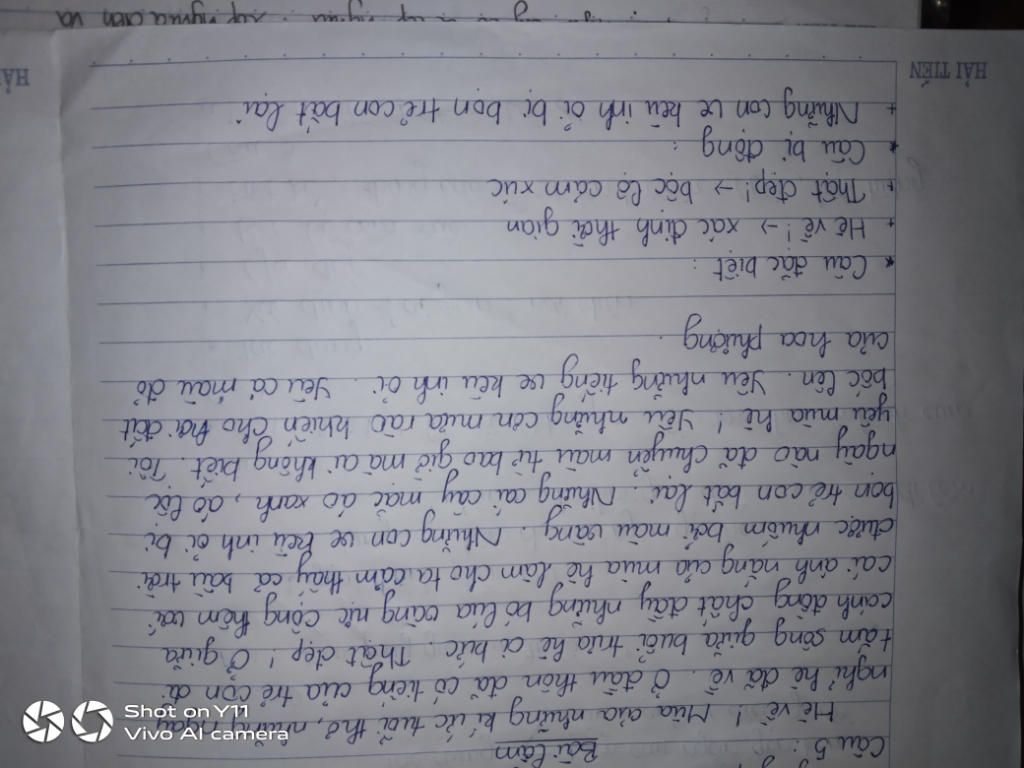 Câu 5:
Bài làm
Hè về! Mùa của những kí ức tuổi thơ, những ngày
nghỉ hè đã về. Ở đầu thôn đã có tiếng của trẻ con đi
tắm sông giữa buổi trưa hè oi bức. Thật đẹp! Ở giữa
cánh đồng chất đầy những bó lúa vàng rực cộng thêm với
cái ánh nắng của mùa hè làm cho ta cảm thấy cả bầu trời
được nhuốm bởi màu vàng. Những con ve kêu inh ỏi bị
bọn trẻ con bắt lại. Những cái cây mặc áo xanh, áo lúc
ngày nào đã chuyển màu từ bao giờ mà ai không biết. Tôi
yêu mùa hè! Yêu những cơn mưa rào khiến cho hơi đất
bốc lên. Yêu những tiếng ve kêu inh ỏi. Yêu cả màu đỏ
của hoa phượng.
* Câu đặc biệt:
+ Hè về! → xác định thời gian
+ Thật đẹp! → bộc lộ cảm xúc
* Câu bị động:
+ Những con ve kêu inh ỏi bị bọn trẻ con bắt lại
HẢI TIẾN
HẢI
Shot on Y11
Vivo AI camera